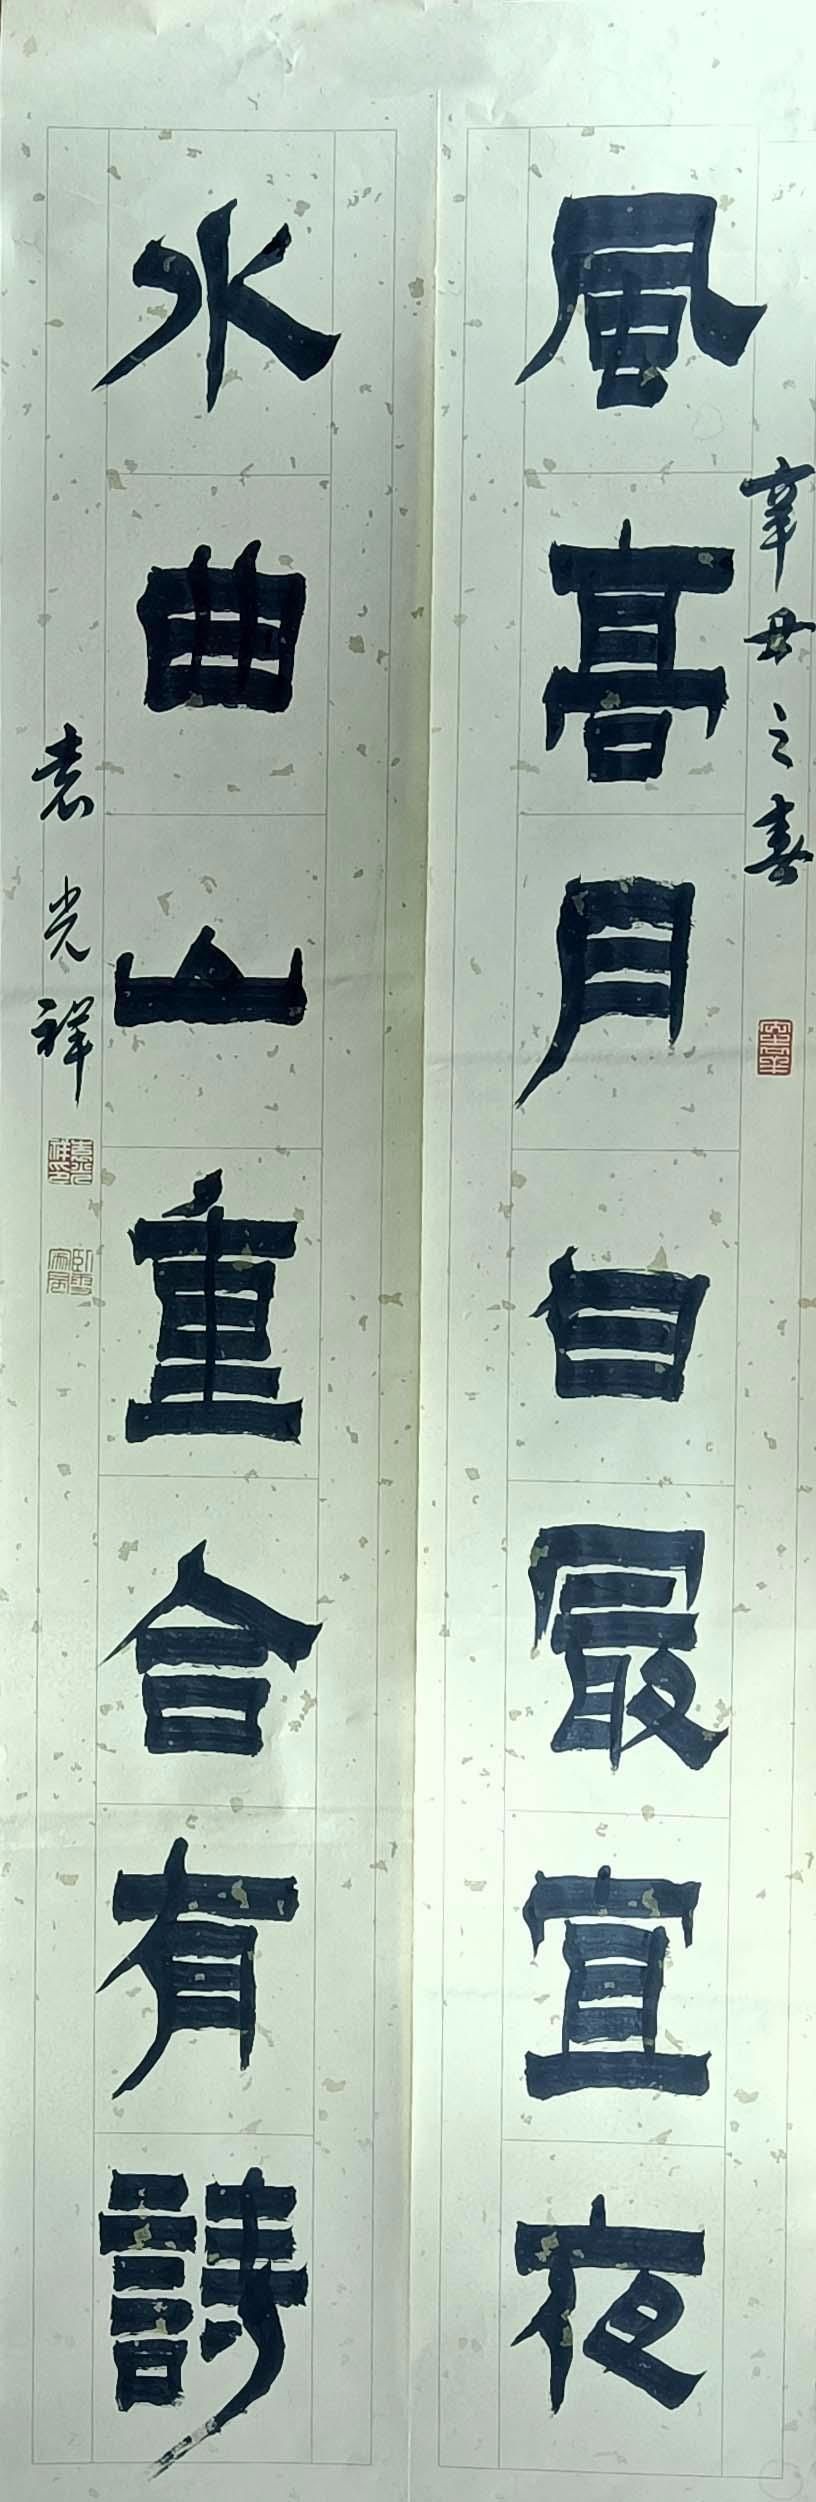 風高月白最宜夜
辛丑之春
水曲山重合有詩
袁光祥